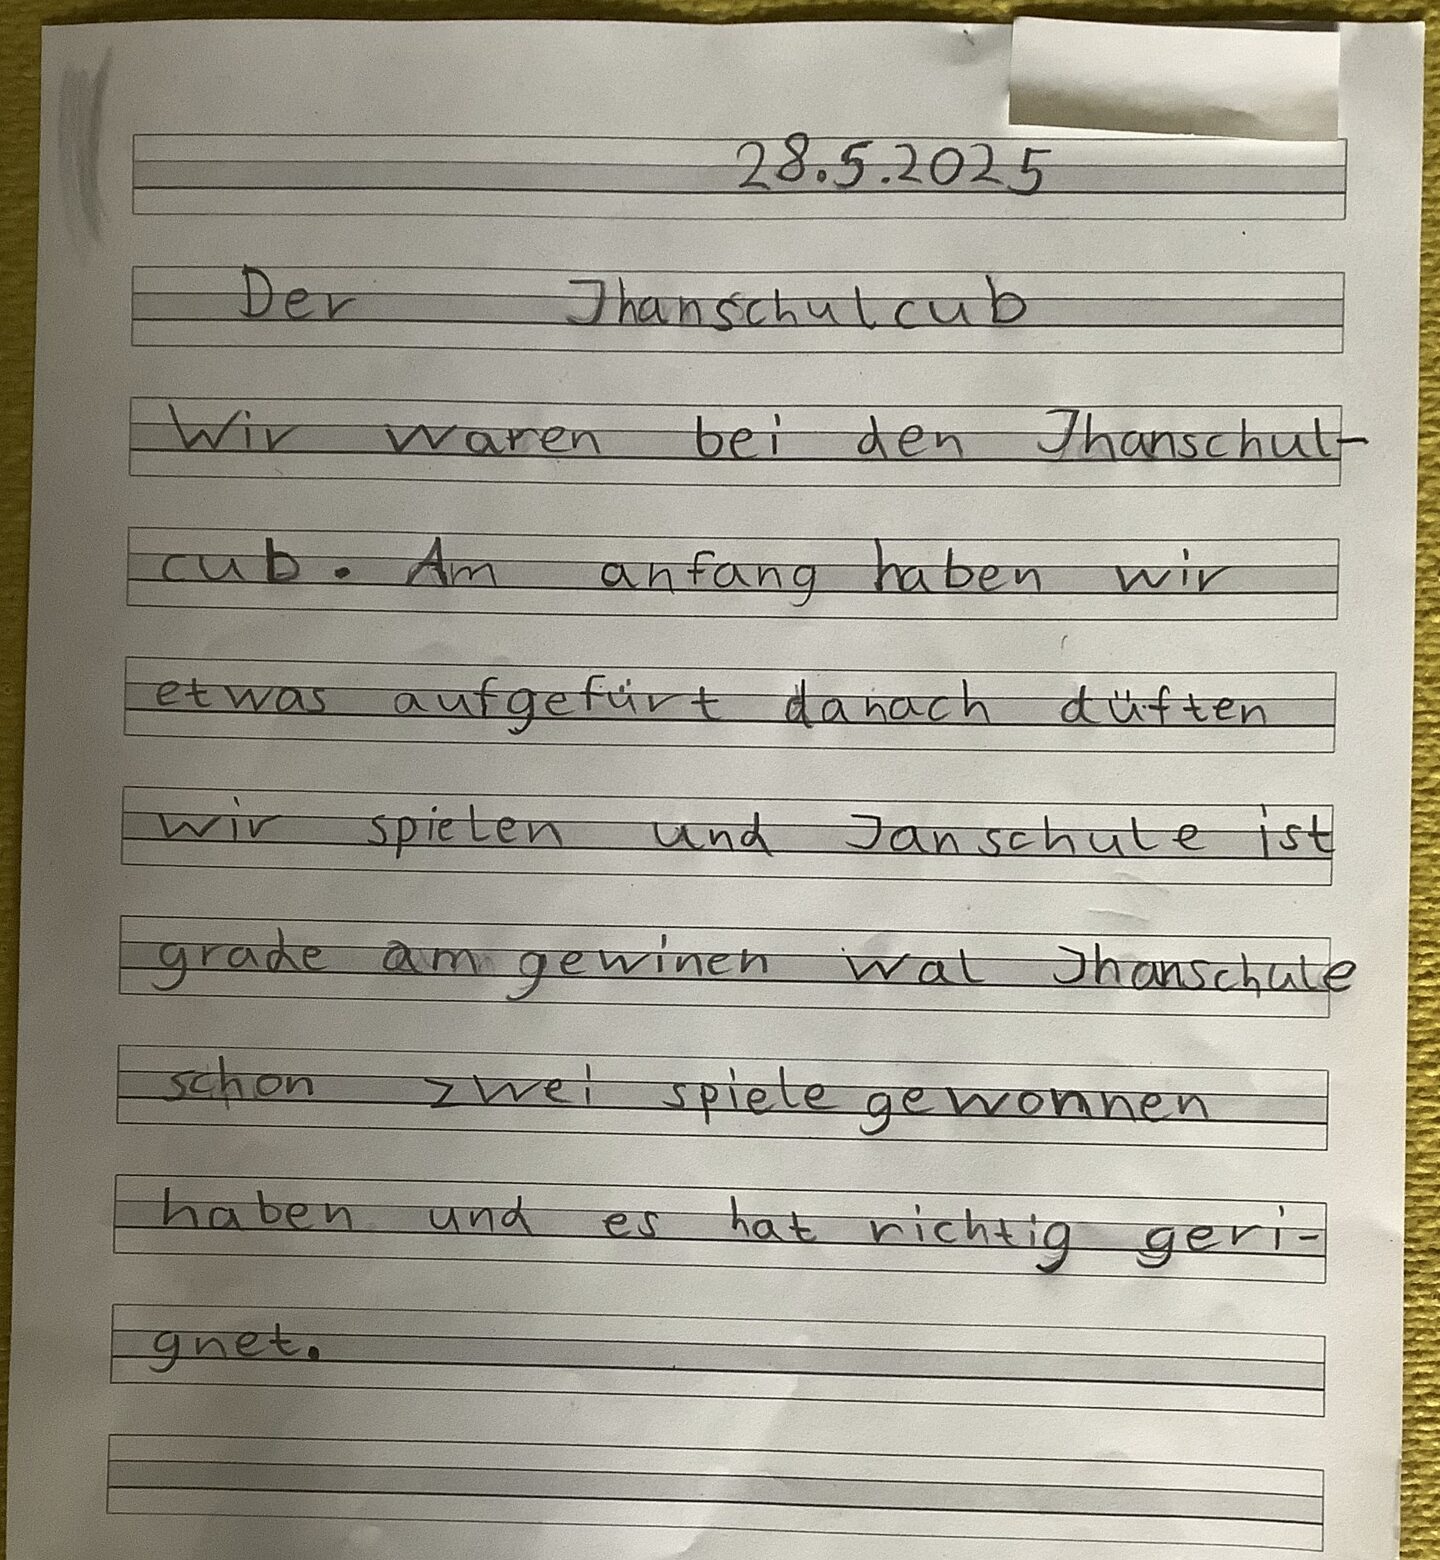 28.5.2025
Der Jhanschulcub
Wir waren bei den Jhanschul-
cub. Am anfang haben wir
etwas aufgefürt danach düften
wir spielen und Janschule ist
grade am gewinen wal Jhanschule
schon zwei spiele gewonnen
haben und es hat richtig geri-
gnet.